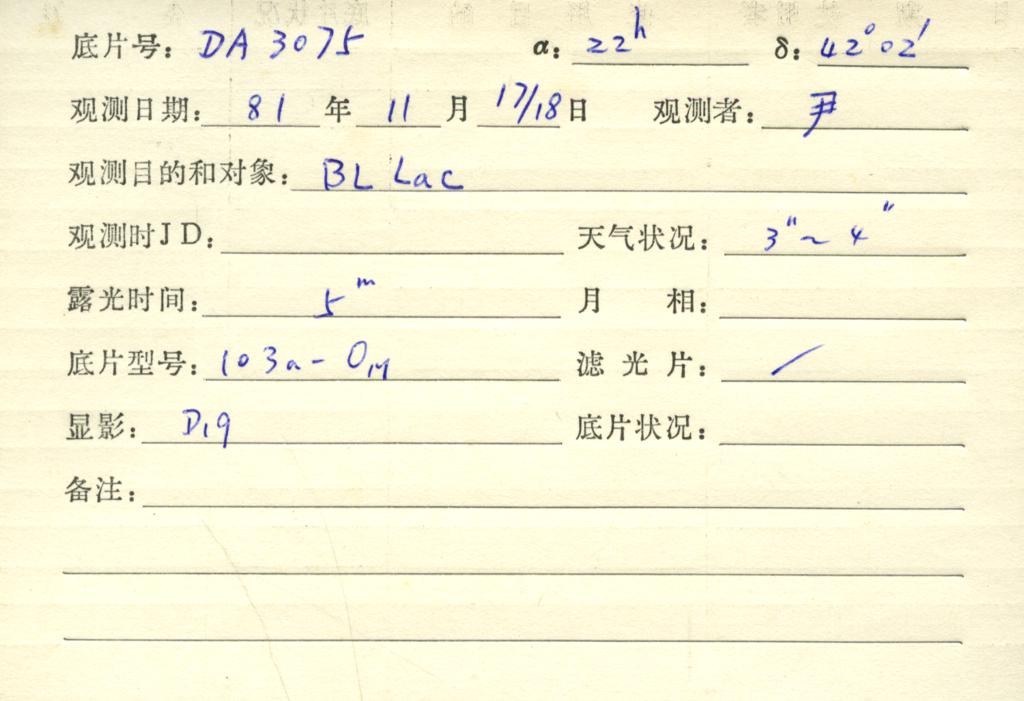 底片号: DA 3075 α: 22h δ: 42°02′
观测日期: 81 年 11 月 17/18 日 观测者: 尹
观测目的和对象: BL Lac
观测时JD: 天气状况: 3″~4″
露光时间: 5m 月 相:
底片型号: 103a-O 滤光片: /
显影: D19 底片状况:
备注: